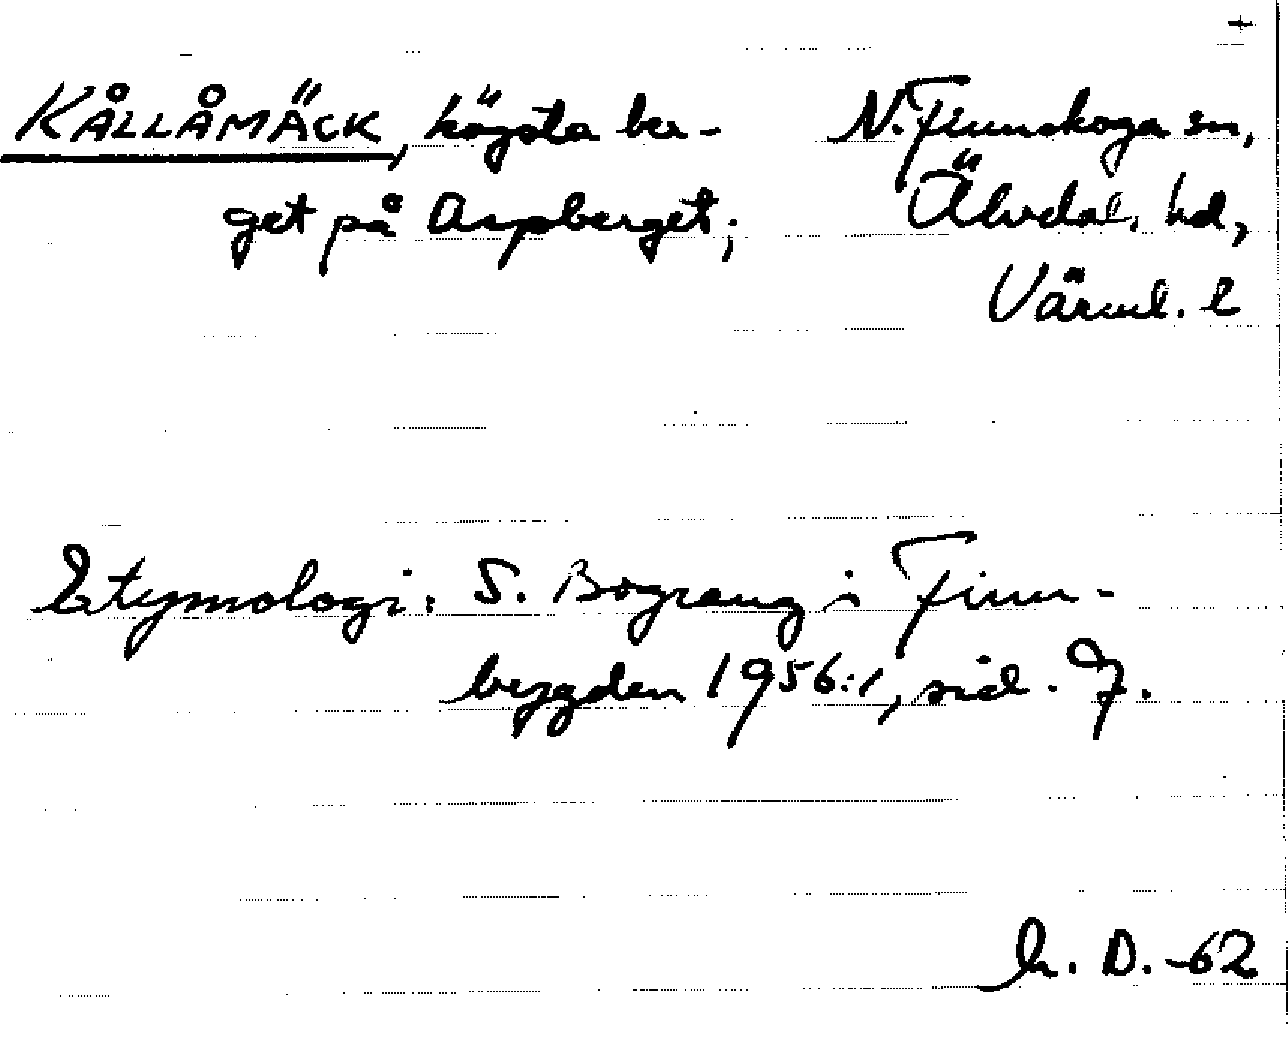 KÅLLÅMÄCK, högsta ber- N. Finnskoga sn,
get på Aspberget; Älvdal. hd,
Värml. l
Etymologi: S. Bograng i Finn-
bygden 1956:1, sid. 7.
h. D. -62